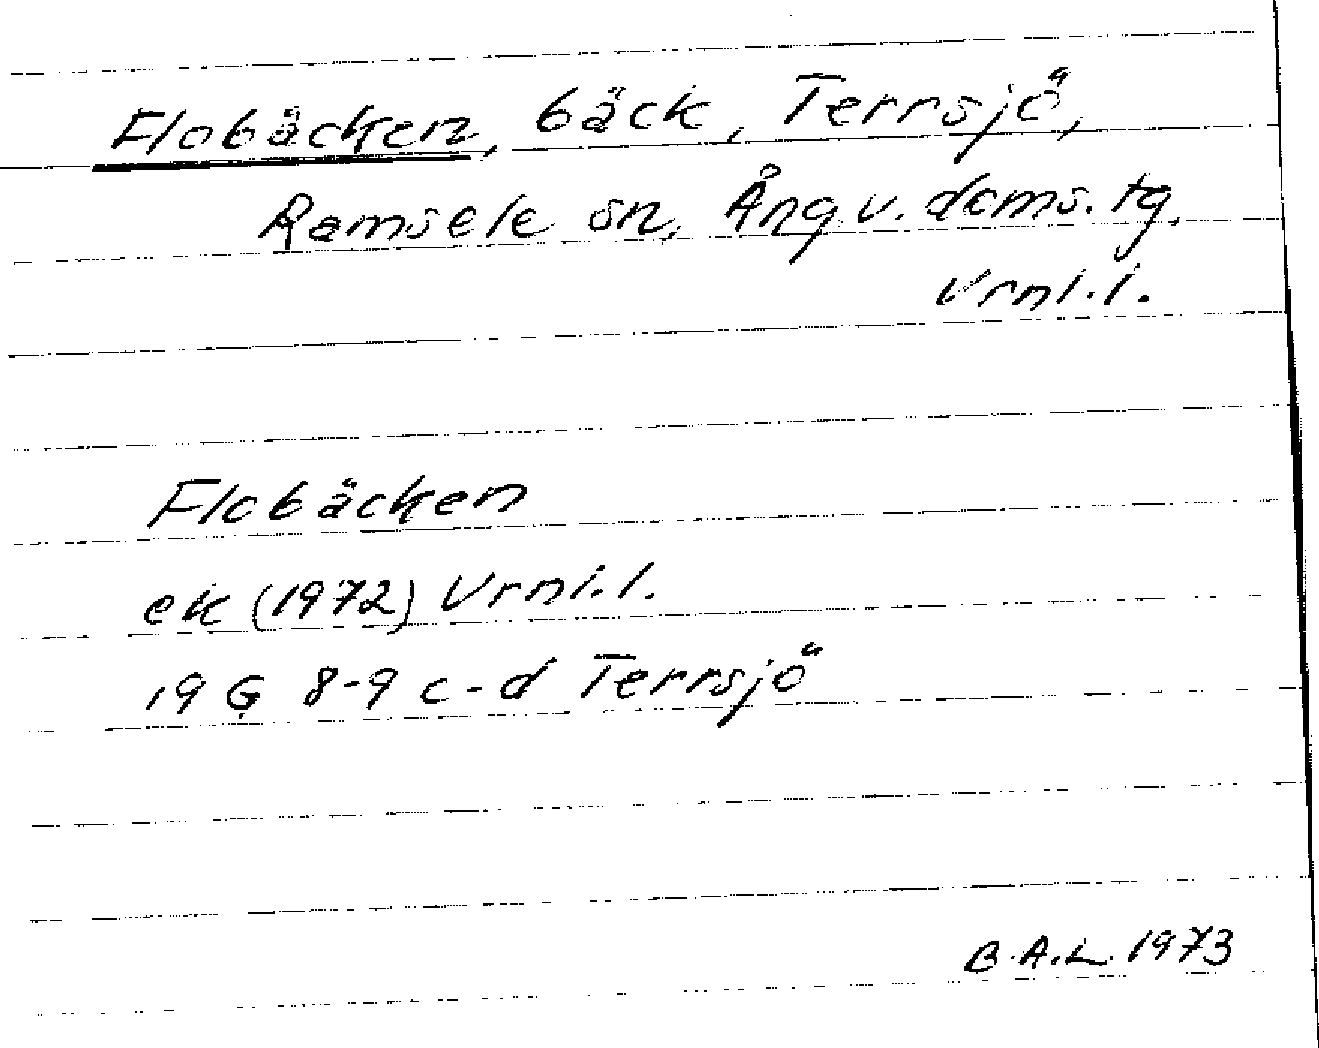 Flobäcken, bäck, Terrsjö,
Ramsele sn, Ång v. doms. tg.
Vrnl.l.
Flobäcken
ek (1972) Vrnl.l.
19 G 8-9 c-d Terrsjö
B.A.L. 1973